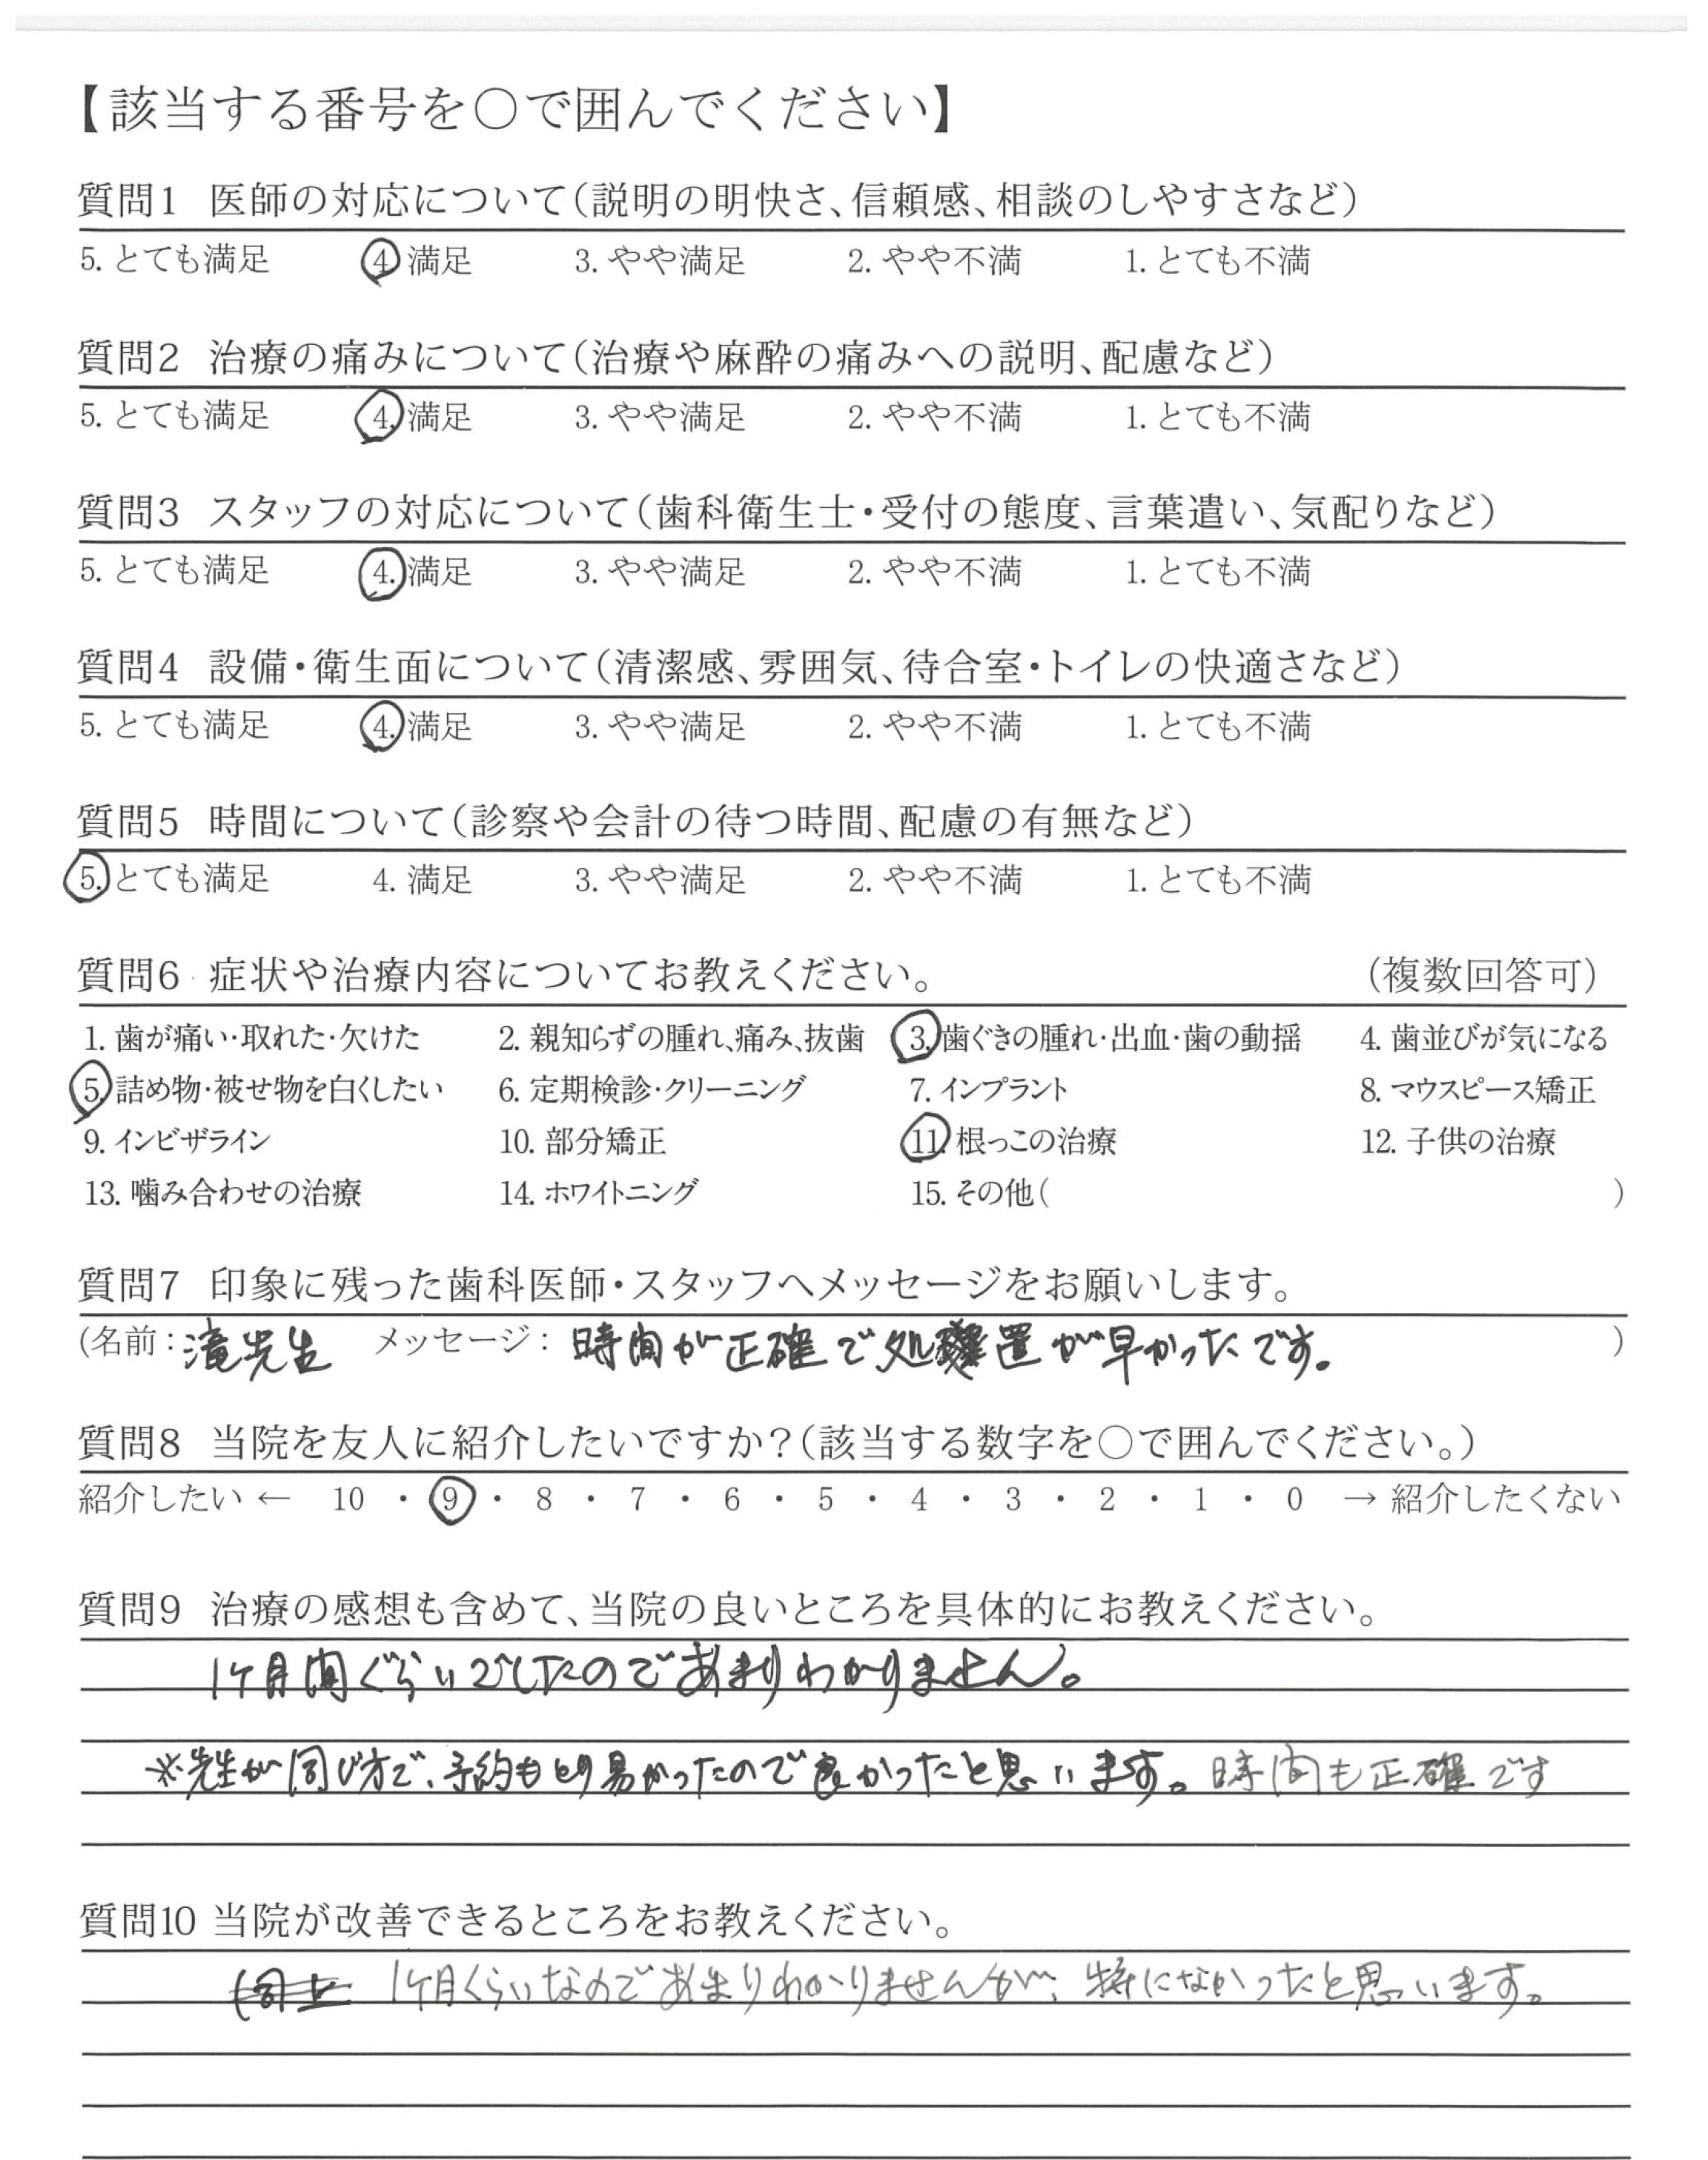 【該当する番号を○で囲んでください】
質問1 医師の対応について(説明の明快さ、信頼感、相談のしやすさなど)
5. とても満足 4. 満足 3. やや満足 2. やや不満 1. とても不満
質問2 治療の痛みについて(治療や麻酔の痛みへの説明、配慮など)
5. とても満足 4. 満足 3. やや満足 2. やや不満 1. とても不満
質問3 スタッフの対応について(歯科衛生士・受付の態度、言葉遣い、気配りなど)
5. とても満足 4. 満足 3. やや満足 2. やや不満 1. とても不満
質問4 設備・衛生面について(清潔感、雰囲気、待合室・トイレの快適さなど)
5. とても満足 4. 満足 3. やや満足 2. やや不満 1. とても不満
質問5 時間について(診察や会計の待つ時間、配慮の有無など)
5. とても満足 4. 満足 3. やや満足 2. やや不満 1. とても不満
質問6 症状や治療内容についてお教えください。 (複数回答可)
1. 歯が痛い・取れた・欠けた 2. 親知らずの腫れ、痛み、抜歯 3. 歯ぐきの腫れ・出血・歯の動揺 4. 歯並びが気になる
5. 詰め物・被せ物を白くしたい 6. 定期検診・クリーニング 7. インプラント 8. マウスピース矯正
9. インビザライン 10. 部分矯正 11. 根っこの治療 12. 子供の治療
13. 噛み合わせの治療 14. ホワイトニング 15. その他( )
質問7 印象に残った歯科医師・スタッフへメッセージをお願いします。
(名前:滝先生 メッセージ: 時間が正確で処置が早かったです。 )
質問8 当院を友人に紹介したいですか?(該当する数字を○で囲んでください。)
紹介したい ← 10 ・ 9 ・ 8 ・ 7 ・ 6 ・ 5 ・ 4 ・ 3 ・ 2 ・ 1 ・ 0 → 紹介したくない
質問9 治療の感想も含めて、当院の良いところを具体的にお教えください。
1ケ月間ぐらいでしたのであまりわかりません。
※先生が同じ方で、予約もとり易かったので良かったと思います。時間も正確です
質問10 当院が改善できるところをお教えください。
同上 1ケ月くらいなのであまりわかりませんが、特になかったと思います。